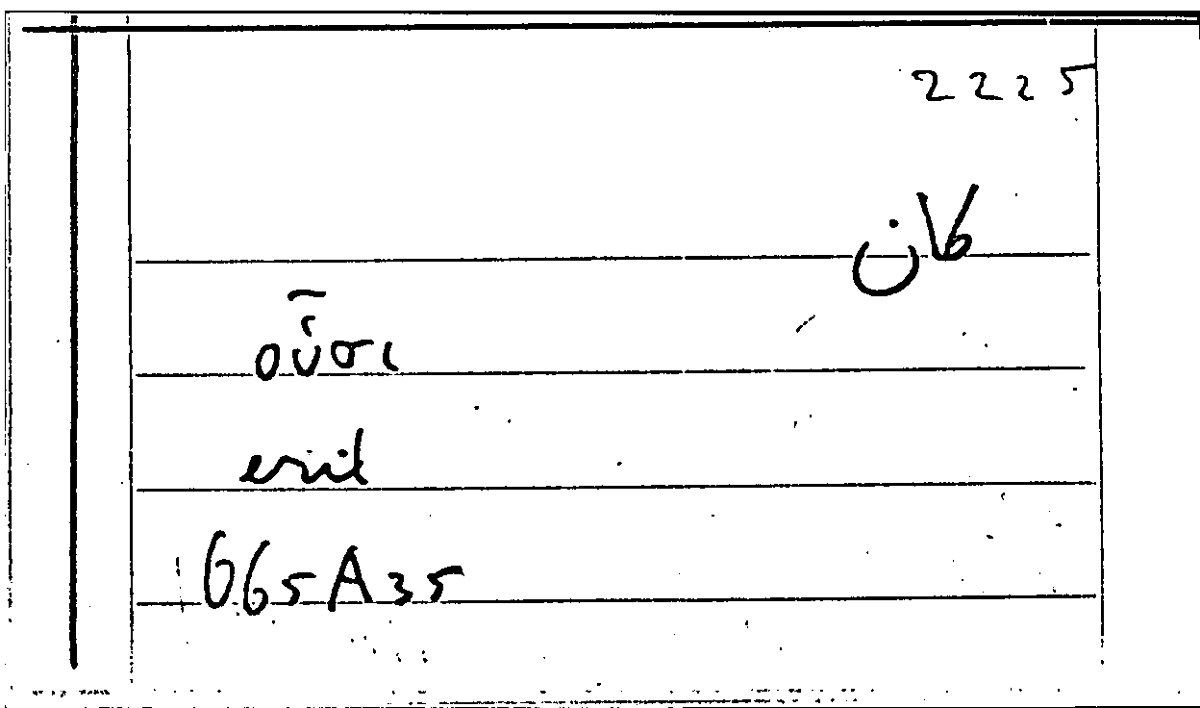 2225
كان
οὖσι
erit
665A35